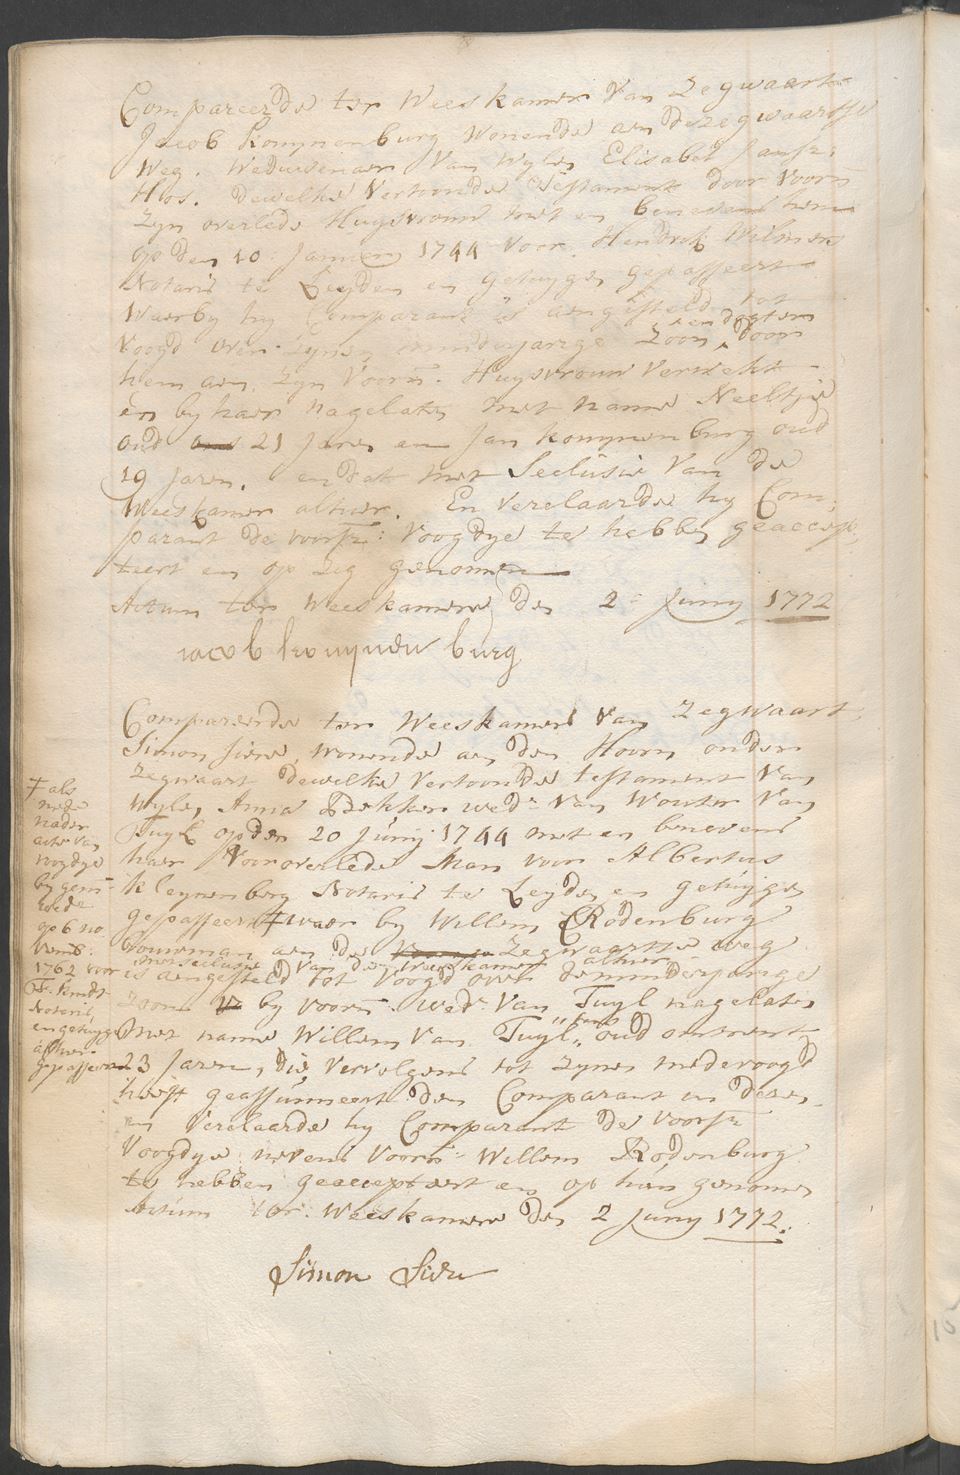 Compareerde ter Weeskamer van Zegwaart
Jacob Komijnenburg wonende aen de Zegwaartse
Weg. Weduwenaer van wijlen Elisabet Jansz:
Hos. dewelke vertoonde Testament door voorn
zijn overlede Huysvrouw met en benevens hem
op den 10: January 1744 voor Hendrik
Notaris te Leyden en getuygen gepasseert
Waerby hy Comparant is aengesteld tot
Voogd over zynen minderjarige Zoon en dogter door
hem aen zyn voorn. Huysvrouw verwekt
en by haer nagelaten met name Neeltje
oud 21 Jaren en Jan Komijnenburg oud
19 Jaren. en dat met Seclusie van de
Weeskamer alhier. En verclaarde hy Com,
parant de voorsz: Voogdye te hebben geaccep,
teert en op zig genomen
Actum ter Weeskamere den 2: Juny 1772
Jacob komijnen burg
Compareerde ter Weeskamere van Zegwaart
Simon Siere, wonende aen den Hoorn onder
Zegwaart dewelke vertoonde testament van
wyle, Anna Bekker wedr van Wouter van
Tuyl op den 20 Junij 1744 met en benevens
haer vooroverlede Man voor Albertus
Kleynenberg Notaris te Leyden en getuygen
gepasseert ‡ waer by Willem Rodenburg
bouwman aen de Zegwaartse weg
met seclusie van de weeskamer alhier
is aengesteld tot voogd over de minderjarige
zoon by voorn. wedr van Tuyl nagelaten
met name Willem van Tuyl, oud omtrent
23 Jaren, die vervolgens tot zynen medevoogd
heeft geassumeert den Comparant in dezen
en verclaarde hy Comparant de voorsz
Voogdye nevens voorn: Willem Rodenburg
te hebben geaccepteert en op hun genomen
Actum ter Weeskamere den 2 Juny 1772.
Simon Siere
‡ als
mede
nader
acte van
voogdye
by gem:
wede
op 6 no
vemb:
1762 voor
Notaris
en getuyge
alhier
gepasseert